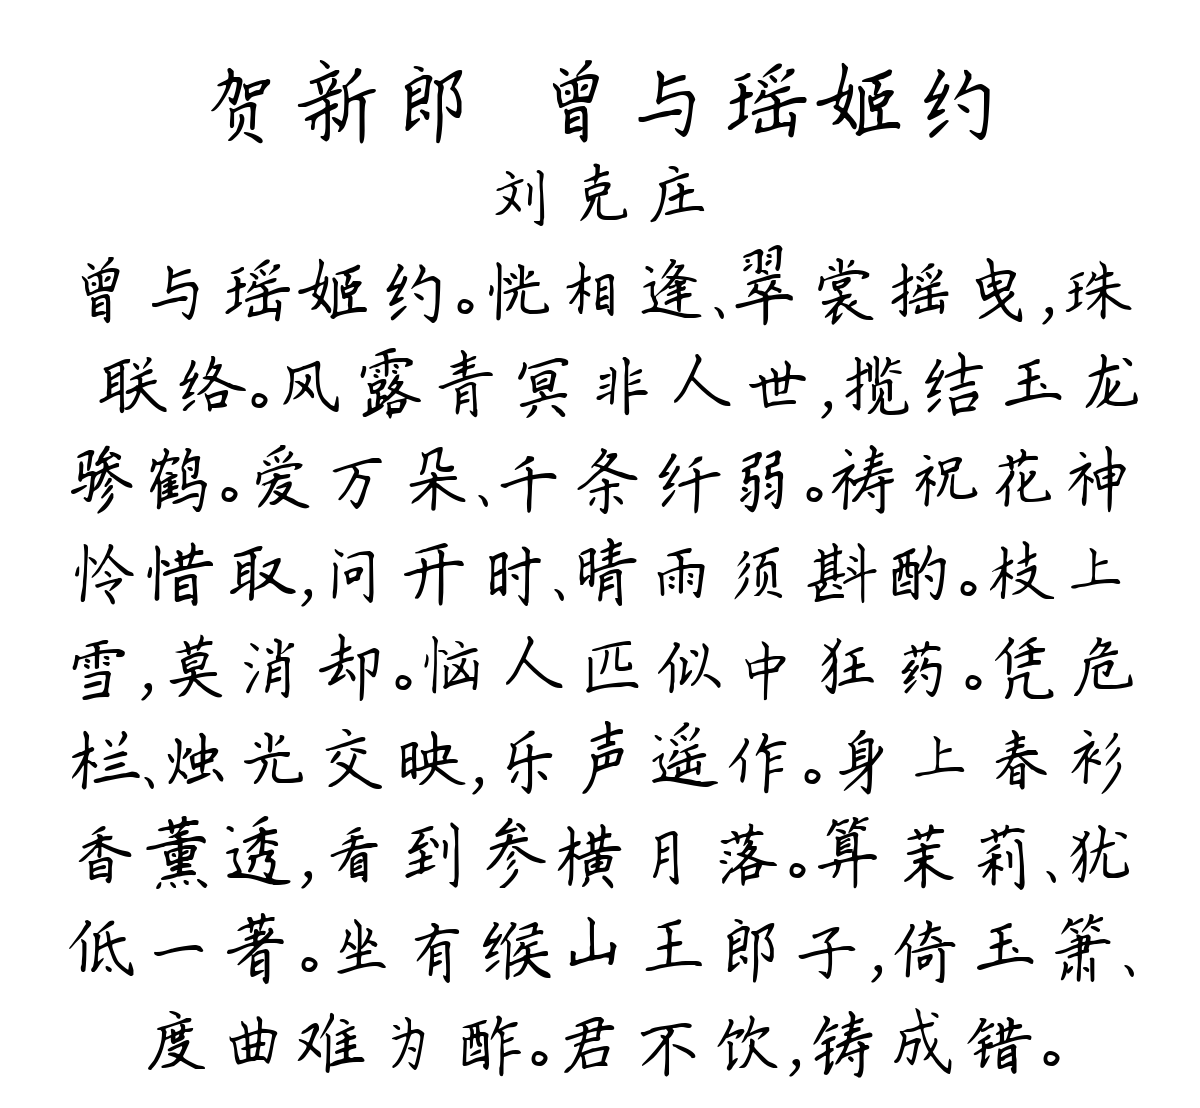 贺新郎 曾与瑶姬约
刘克庄
曾与瑶姬约。恍相逢、翠裳摇曳,珠
联络。风露青冥非人世,揽结玉龙
骖鹤。爱万朵、千条纤弱。祷祝花神
怜惜取,问开时、晴雨须斟酌。枝上
雪,莫消却。恼人匹似中狂药。凭危
栏、烛光交映,乐声遥作。身上春衫
香薰透,看到参横月落。算茉莉、犹
低一著。坐有缑山王郎子,倚玉箫、
度曲难为酢。君不饮,铸成错。